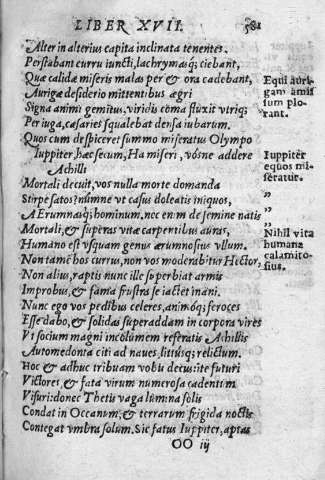 LIBER XVII. 581
Alter in alterius capita inclinata tenentes.
Perstabant curru iuncti, lachrymasq; ciebant,
Quæ calidæ miseris malas per & ora cadebant,
Aurigæ desiderio mittentibus ægri
Signa animi gemitus, viridis coma fluxit vtriq;
Per iuga, cæsaries squalebat densa iubarum.
Quos cum despiceret summo miseratus Olympo
Iuppiter, hæc secum, Ha miseri, vósne addere
Achilli
Mortali decuit, vos nulla morte domanda
Stirpe satos? númne vt casus doleatis iniquos,
Aerumnasq; hominum, nec enim de semine natis
Mortali, & superas vitæ carpentibus auras,
Humano est vsquam genus ærumnosius vllum.
Non tamē hos currus, non vos moderabitur Hector,
Non alius, raptis nunc ille superbiat armis
Improbus, & fama frustra se iactet inani.
Nunc ego vos pedibus celeres, animóq; feroces
Esse dabo, & solidas superaddam in corpora vires
Vt socium magni incolumem referatis Achillis
Automedonta citi ad naues, littusq; relictum.
Hoc & adhuc tribuam vobu decus: ite futuri
Victores, & fata virum numerosa cadentum
Visuri: donec Thetis vaga lumina solis
Condat in Oceanum, & terrarum frigida noctis
Contegat vmbra solum. Sic fatus Iuppiter, aptas
OO iij
Equi auri-
gam amis
sum plo-
rant.
Iuppiter
equos mi-
seratur.
"
"
"
Nihil vita
humana
calamito-
sius.